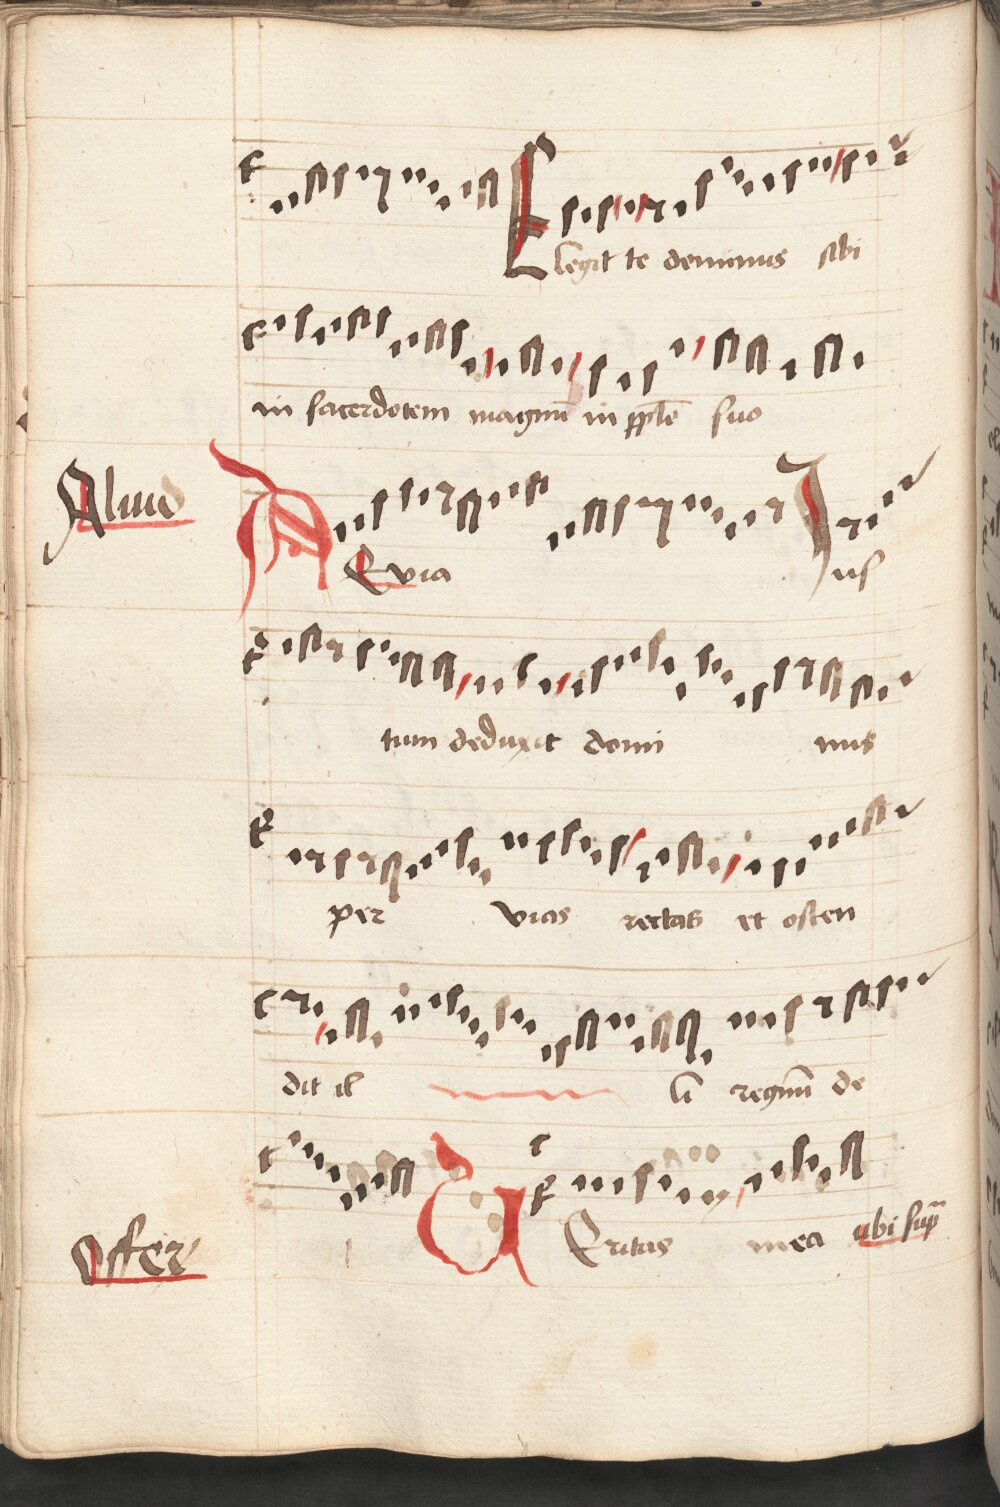 Elegit te dominus sibi
in sacerdotem magnū in pplō suo
Aliud
Aevia Jus
tum deduxit domi nus
per vias rectas et osten
dit il li regnū de
Offer
Veritas mea ubi sup̄